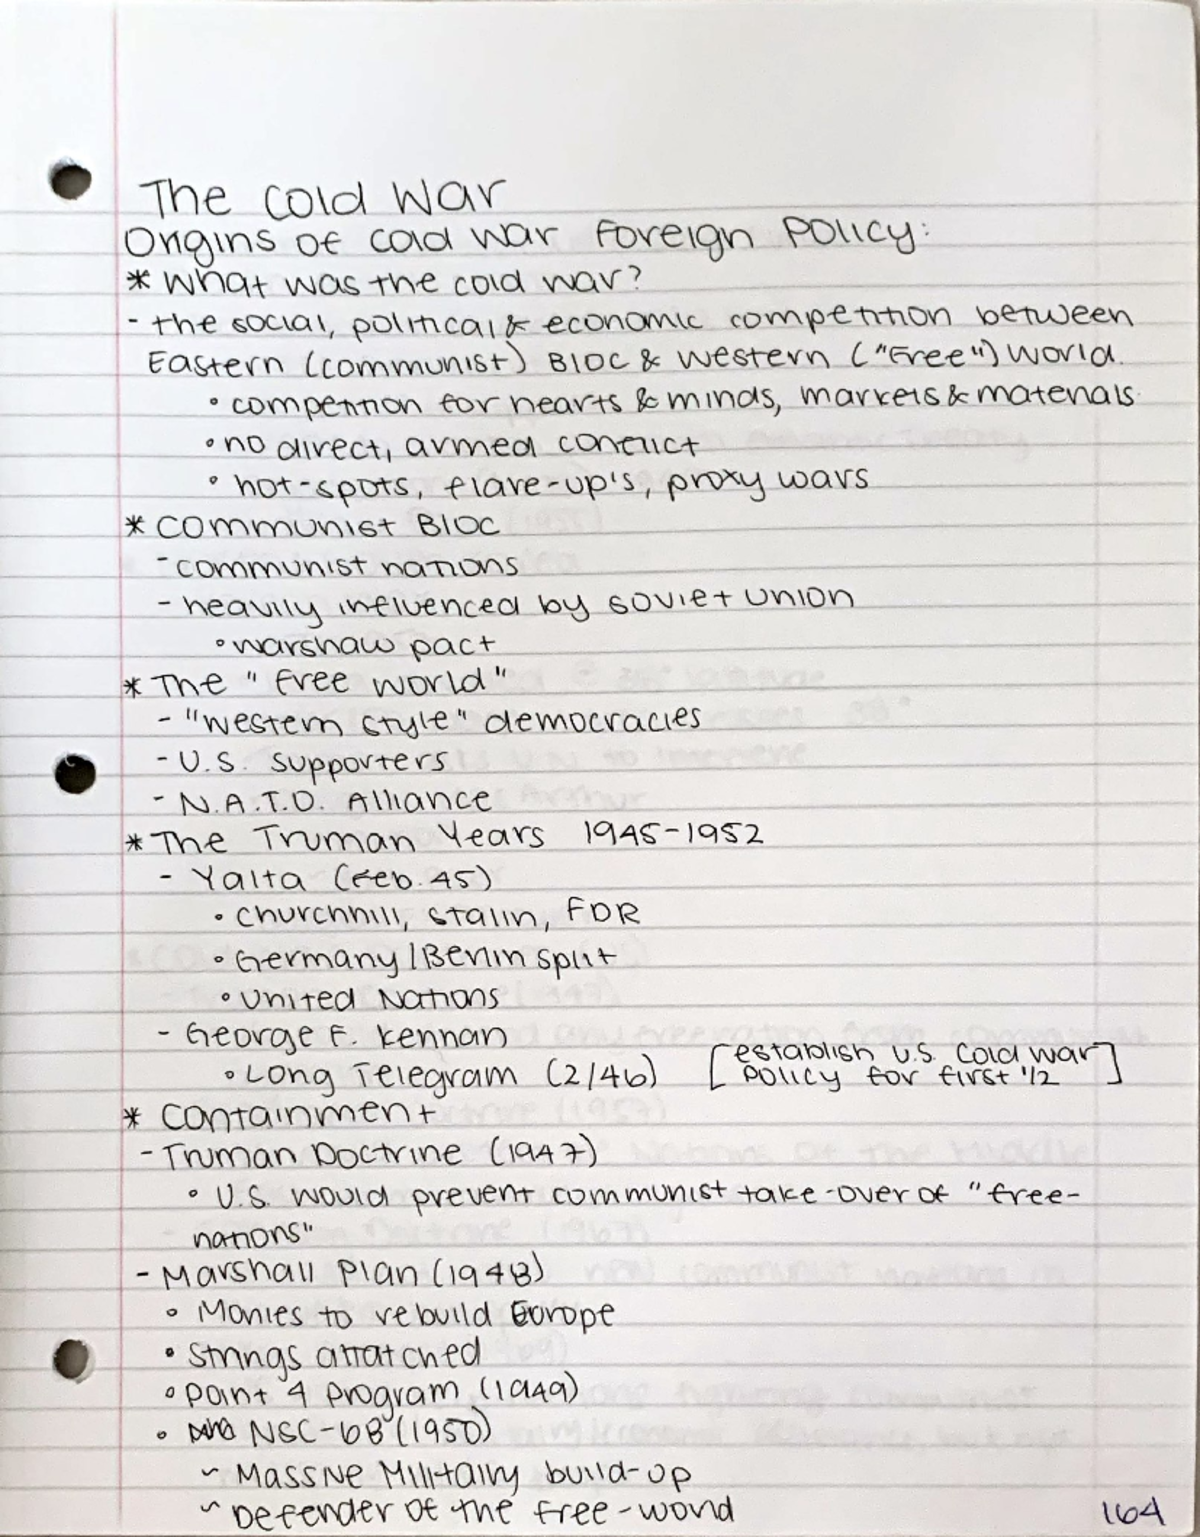 The Cold War
Origins of Cold War Foreign Policy:
* What was the cold war?
- the social, political & economic competition between
Eastern (communist) Bloc & Western ("Free") World.
• competition for hearts & minds, markets & materials
• no direct, armed conflict
• hot-spots, flare-up's, proxy wars
* Communist Bloc
- communist nations
- heavily influenced by Soviet Union
• warshaw pact
* The "Free World"
- "Western style" democracies
- U.S. supporters
- N.A.T.O. Alliance
* The Truman Years 1945-1952
- Yalta (Feb. 45)
• Churchnill, Stalin, FDR
• Germany/Berlin split
• United Nations
- George F. Kennan
• Long Telegram (2/46) [establish U.S. Cold War
Policy for first 1/2]
* Containment
- Truman Doctrine (1947)
• U.S. would prevent communist take-over of "free-
nations"
- Marshall Plan (1948)
• Monies to rebuild Europe
• Strings attatched
• Point 4 Program (1949)
• NSC-68 (1950)
~ Massive Militairy build-up
~ Defender of the free-world
164